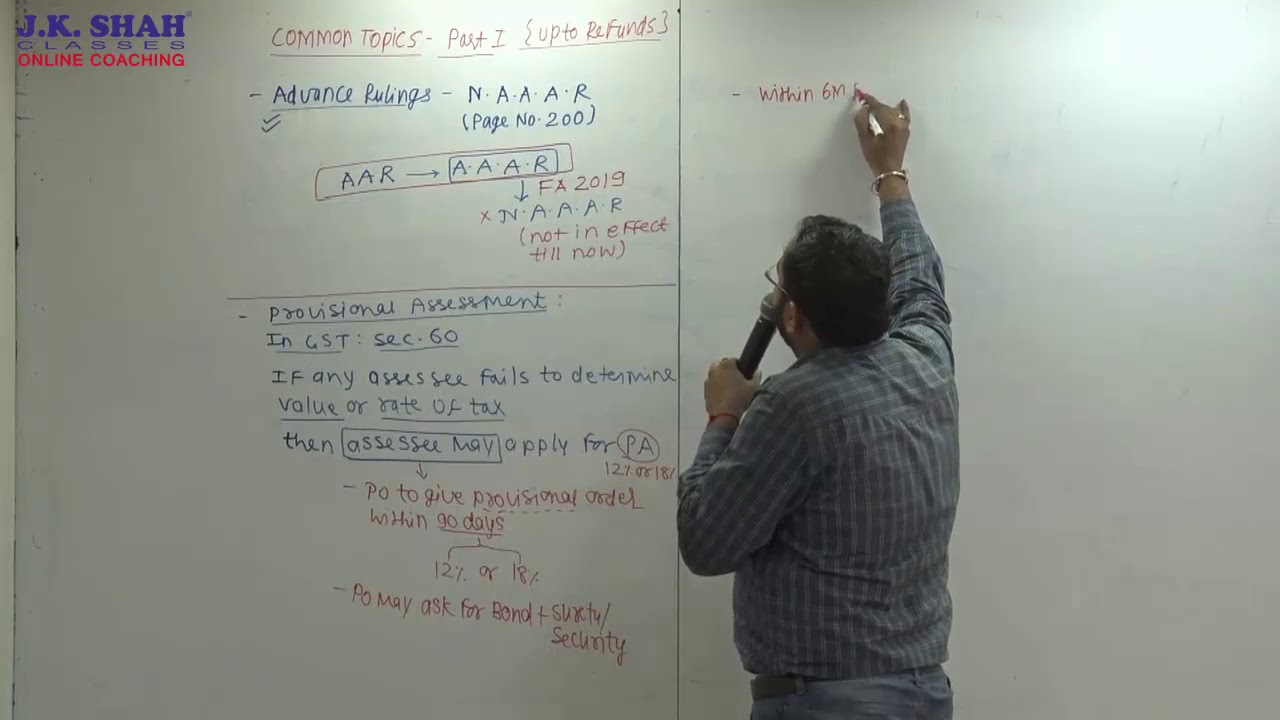 J.K. SHAH®
CLASSES
ONLINE COACHING
COMMON TOPICS - Part I {upto Refunds}
- Advance Rulings - N.A.A.A.R
(Page No. 200)
AAR → A.A.A.R
↓ FA 2019
x N.A.A.A.R
(not in effect
till now)
- Provisional Assessment :
In GST : sec. 60
If any assessee fails to determine
value or rate of tax
then assessee may apply for PA
12% or 18%
- PO to give provisional order
within 90 days
12% or 18%
- PO may ask for Bond + surety/
security
- within 6M